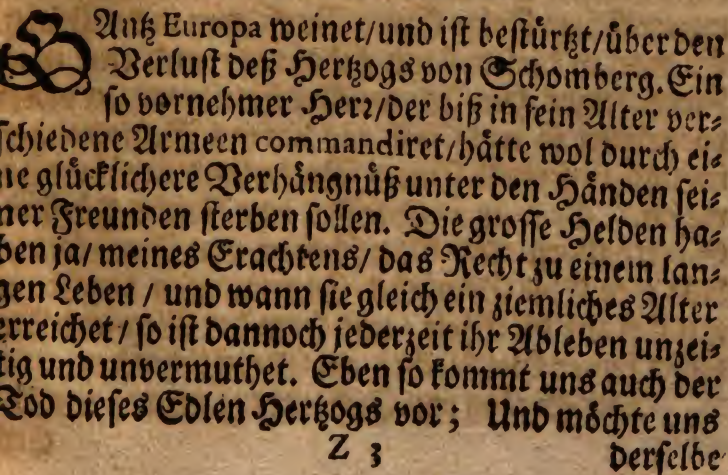 GAntz Europa weinet/und ist bestürtzt/über den
Verlust deß Hertzogs von Schomberg. Ein
so vornehmer Herr/der biß in sein Alter ver⸗
schiedene Armeen commandiret/hätte wol durch ei⸗
ne glücklichere Verhängnüß unter den Händen sei⸗
ner Freunden sterben sollen. Die grosse Helden ha⸗
ben ja/ meines Erachtens/ das Recht zu einem lan⸗
gen Leben / und wann sie gleich ein ziemliches Alter
erreichet / so ist dannoch jederzeit ihr Ableben unzei⸗
tig und unvermuthet. Eben so kommt uns auch der
Tod dieses Edlen Hertzogs vor; Und möchte uns
Z 3 derselbe